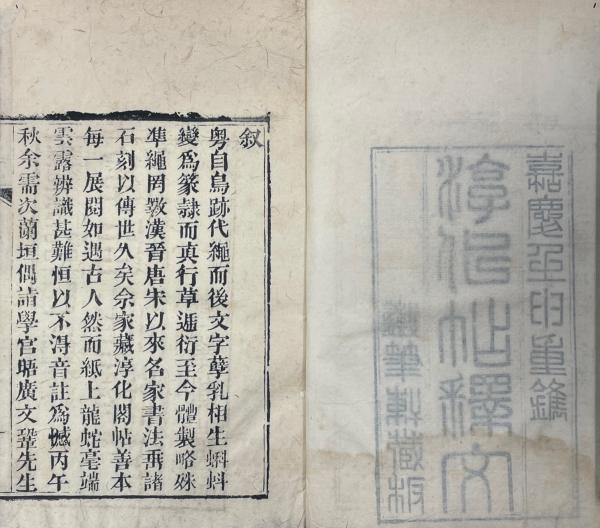 嘉慶卯重鐫
淳化帖釋文
筆軒藏板
叙
粤自鳥跡代繩而後文字孳乳相生蝌蚪
變爲篆隷而真行草遞衍至今體製略殊
凖繩罔斁漢晉唐宋以來名家書法垂諸
石刻以傳世久矣余家藏淳化閣帖善本
每一展閱如遇古人然而紙上龍蛇毫端
雲露辨識甚難恒以不淂音註爲憾丙午
秋余需次蘭垣偶詣學官晤廣文鞏先生